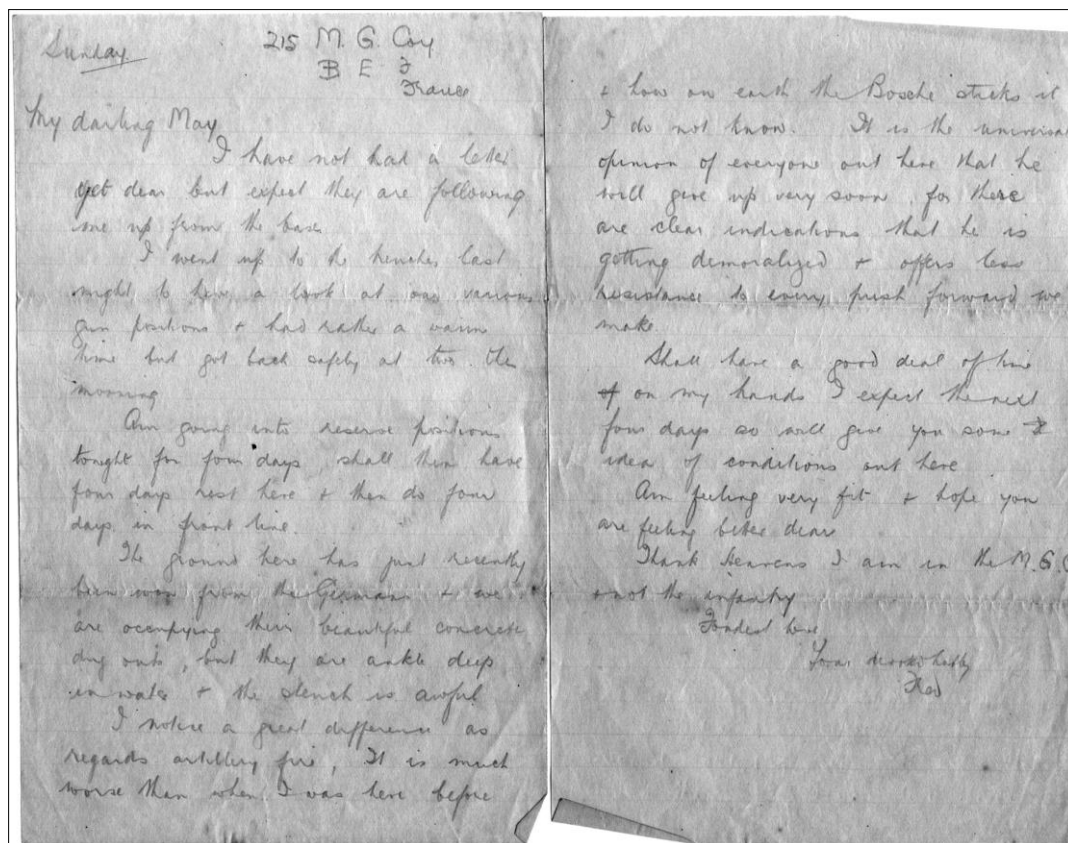 Sunday
215 M. G. Coy
B E F
France
My darling May
I have not had a letter
yet dear but expect they are following
me up from the base
I went up to the trenches last
night to have a look at our various
gun positions + had rather a warm
time but got back safely at two the
morning
Am going into reserve positions
tonight for four days, shall then have
four days rest here + then do four
days in front line.
The ground here has just recently
been won from the Germans + we
are occupying their beautiful concrete
dug outs, but they are ankle deep
in water + the stench is awful
I notice a great difference as
regards artillery fire, It is much
worse than when I was here before
+ how on earth the Bosche sticks it
I do not know. It is the universal
opinion of everyone out here that he
will give up very soon, for there
are clear indications that he is
getting demoralized + offers less
resistance to every push forward we
make.
Shall have a good deal of time
of on my hands I expect the next
four days so will give you some
idea of conditions out here
Am feeling very fit + hope you
are feeling better dear
Thank Heavens I am in the M.G.C
+ not the infantry
Fondest love
Yours
Fred